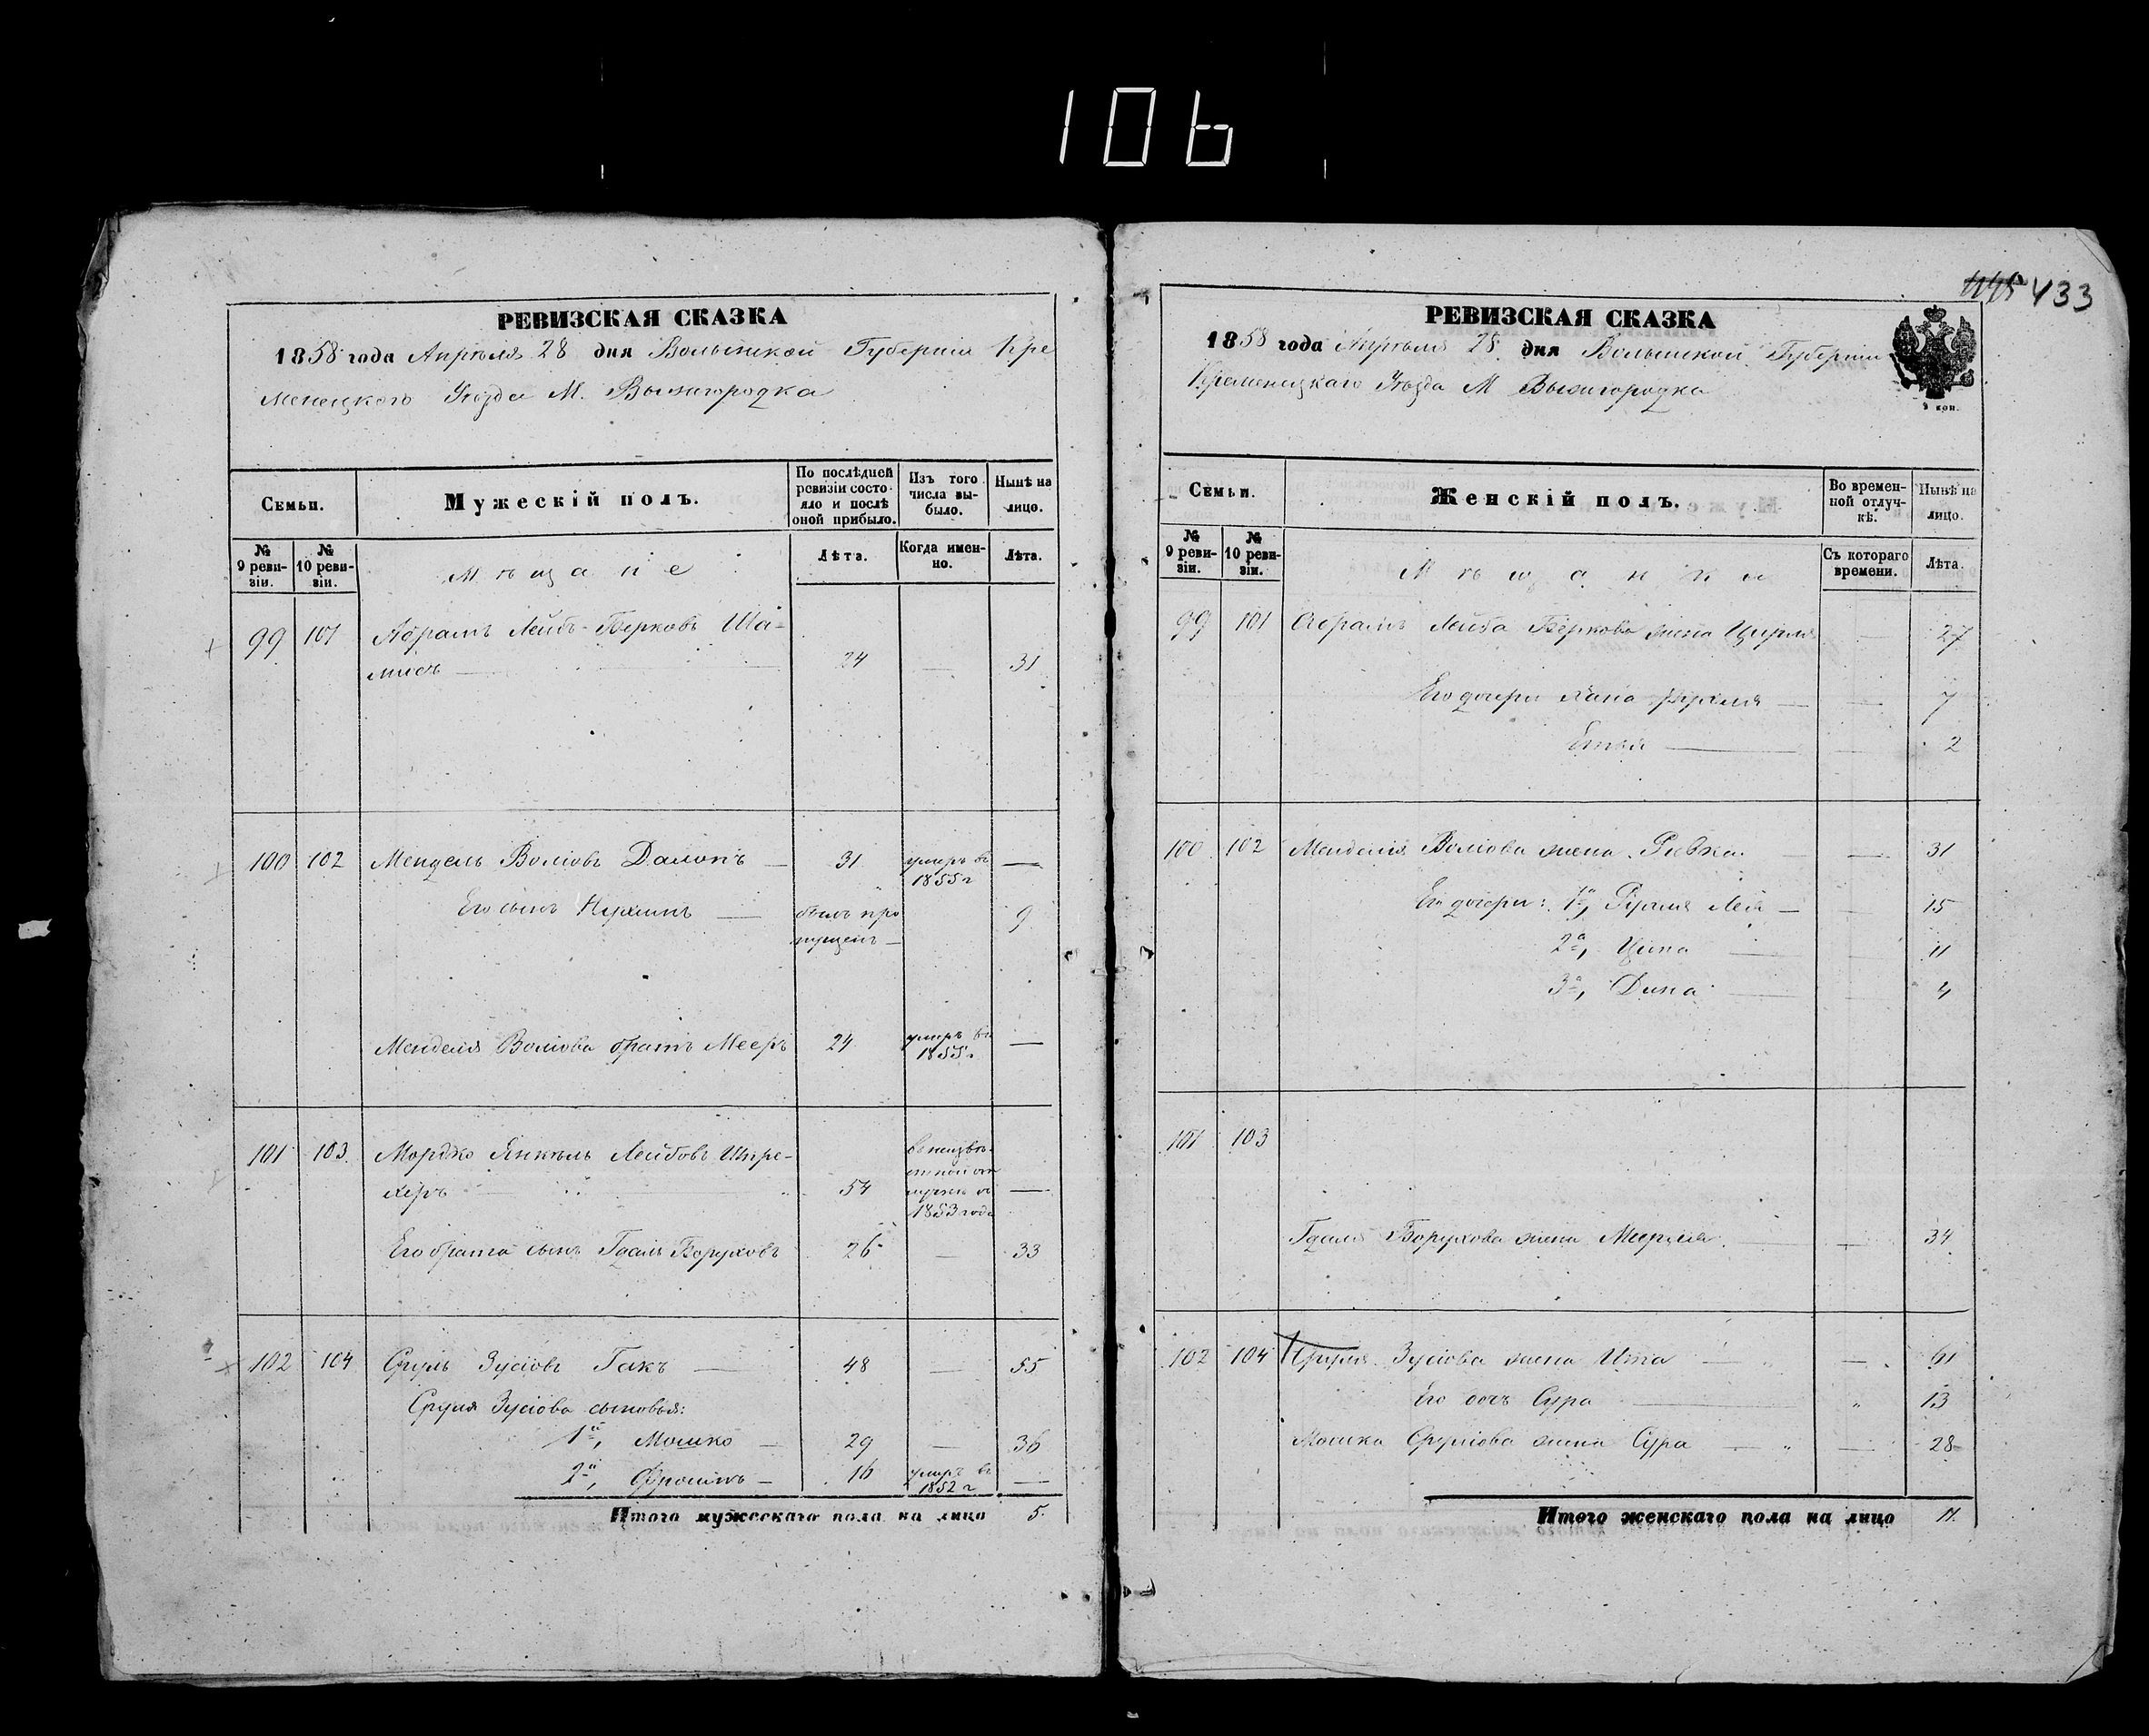 106
РЕВИЗСКАЯ СКАЗКА
1858 года Апрѣля 28 дня Волынской Губерніи Кре
менецкого Уѣзда М. Вышгородка
Семьи.
Мужескій полъ.
По послѣдней ревизіи состо-
яло и послѣ
оной прибыло.
Изъ того
числа вы-
было.
Нынѣ на
лицо.
№ 9 реви-
зіи.
№ 10 реви-
зіи.
Мѣщане
Лѣта.
Когда имен-
но.
Лѣта.
99 101 Абрамъ Лейбъ Берковъ Ша-
мисъ — 24 — 31
100 102 Мендель Волковъ — 31 умеръ въ 1855 г —
Его сынъ Нухимъ — былъ про
пущенъ — 9
Менделя Волкова братъ Мееръ 24 умеръ въ 1855 г —
101 103 Мордко Янкель Лейбовъ Шпре-
херъ 54 въ неизвѣ-
стной от
лучкѣ съ
1853 года —
Его брата сынъ Гдаль Боруховъ 26 — 33
102 104 Сруль Зусіовъ Гакъ — 48 — 55
Сруля Зусіова сыновья:
1й, Мошко — 29 — 36
2й, Фроимъ — 16 умеръ въ 1852 г —
Итого мужескаго пола на лицо 5.
433
РЕВИЗСКАЯ СКАЗКА
1858 года Апрѣля 28 дня Волынской Губерніи
Кременецкаго Уѣзда М Вышгородка
9 коп.
Семьи.
Женскій полъ.
Во времен-
ной отлуч-
кѣ.
Нынѣ на
лицо.
№ 9 реви-
зіи.
№ 10 реви-
зіи.
Мѣщанки
Съ котораго
времени.
Лѣта.
99 101 Абрамъ Лейба Беркова жена Цирля — 27
Его дочери Хана Рухля — — 7
Етля — — 2
100 102 Менделя Волкова жена Ривка — — 31
Его дочери: 1я, Рухля Лея — — 15
2я, Ципа — — 11
3я, Дина — — 4
101 103
Гдаля Борухова жена — 34
102 104 Сруля Зусіова жена Ита — — 61
Его дочь Сура — " 13
Мошка Срулiова жена Сура — " — 28
Итого женскаго пола на лицо 11.